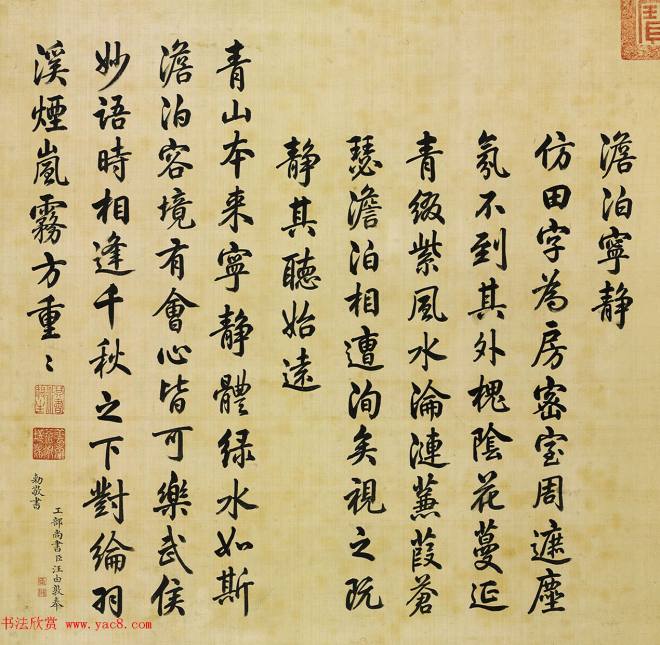 澹泊寧静
仿田字為房密室周遮塵
氛不到其外槐陰花蔓延
青綴紫風水淪漣蒹葭蒼
瑟澹泊相遭洵矣視之既
静其聽始遠
青山本来寧静體緑水如斯
澹泊容境有會心皆可樂武侯
妙語時相逢千秋之下對綸羽
溪煙嵐霧方重〻
工部尚書臣汪由敦奉
勅敬書
书法欣赏 www.yac8.com